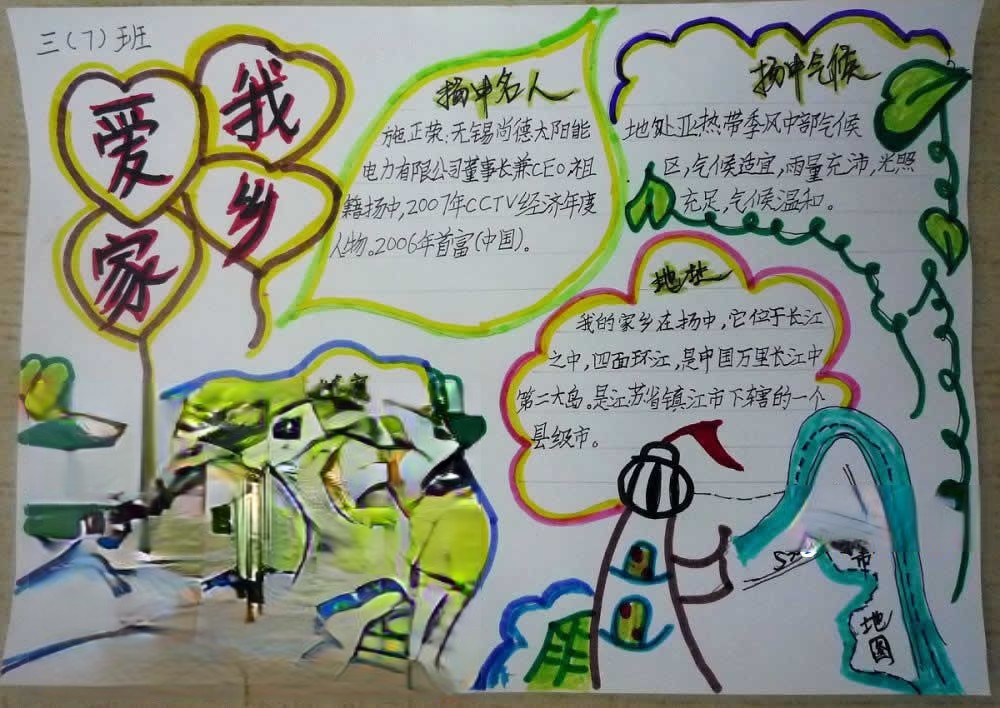 三(7)班
爱我
家乡
扬中名人
施正荣:无锡尚德太阳能
电力有限公司董事长兼CEO.祖
籍扬中,2007年CCTV经济年度
人物。2006年首富(中国)。
扬中气候
地处亚热带季风中部气候
区,气候适宜,雨量充沛,光照
充足,气候温和。
地址
我的家乡在扬中,它位于长江
之中,四面环江,是中国万里长江中
第二大岛。是江苏省镇江市下辖的一个
县级市。
市
地
图